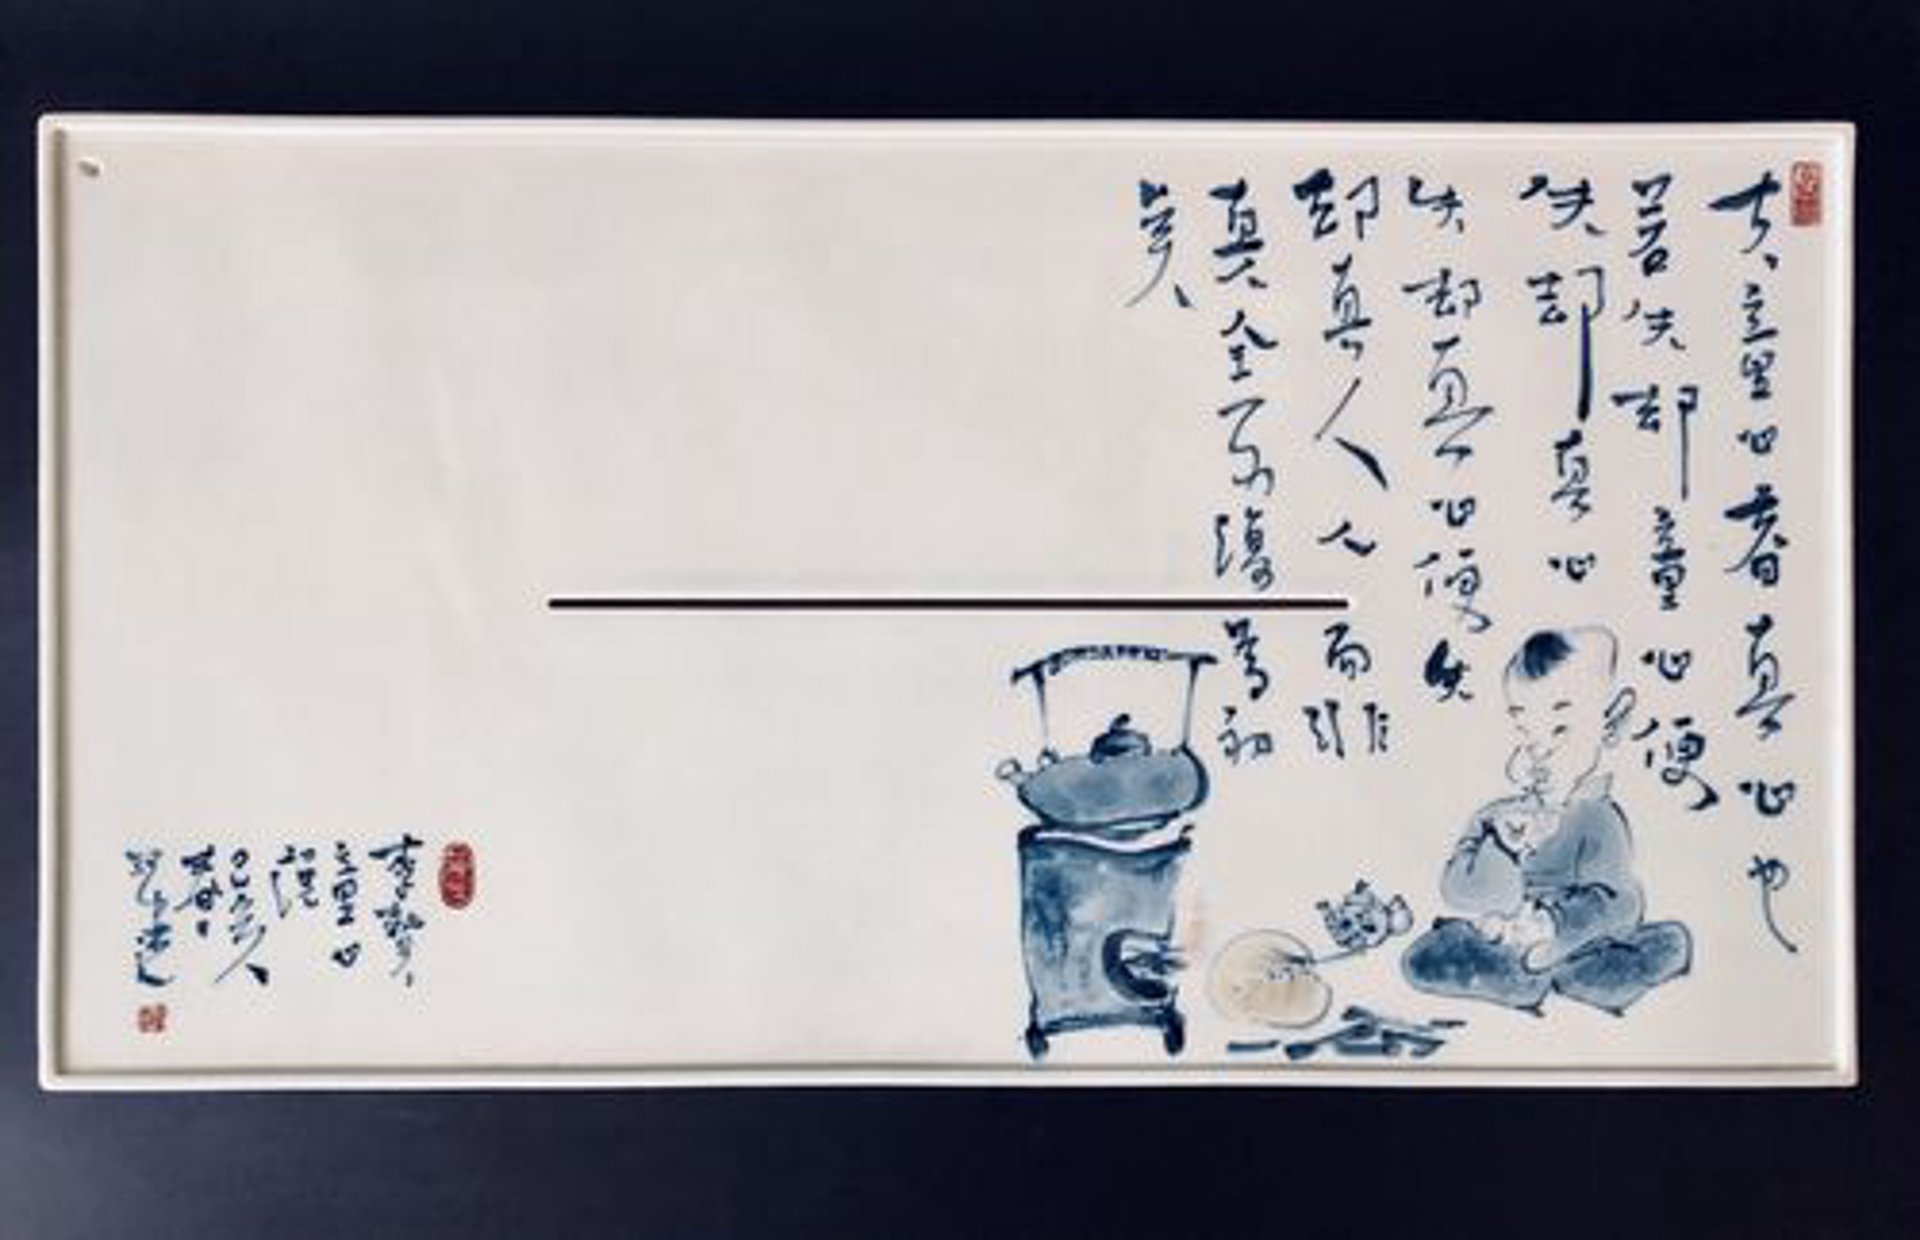 夫童心者真心也
若失却童心便
失却真心
失却真心便失
却真人人而非
真全不復有初
矣
李贄
童心
說